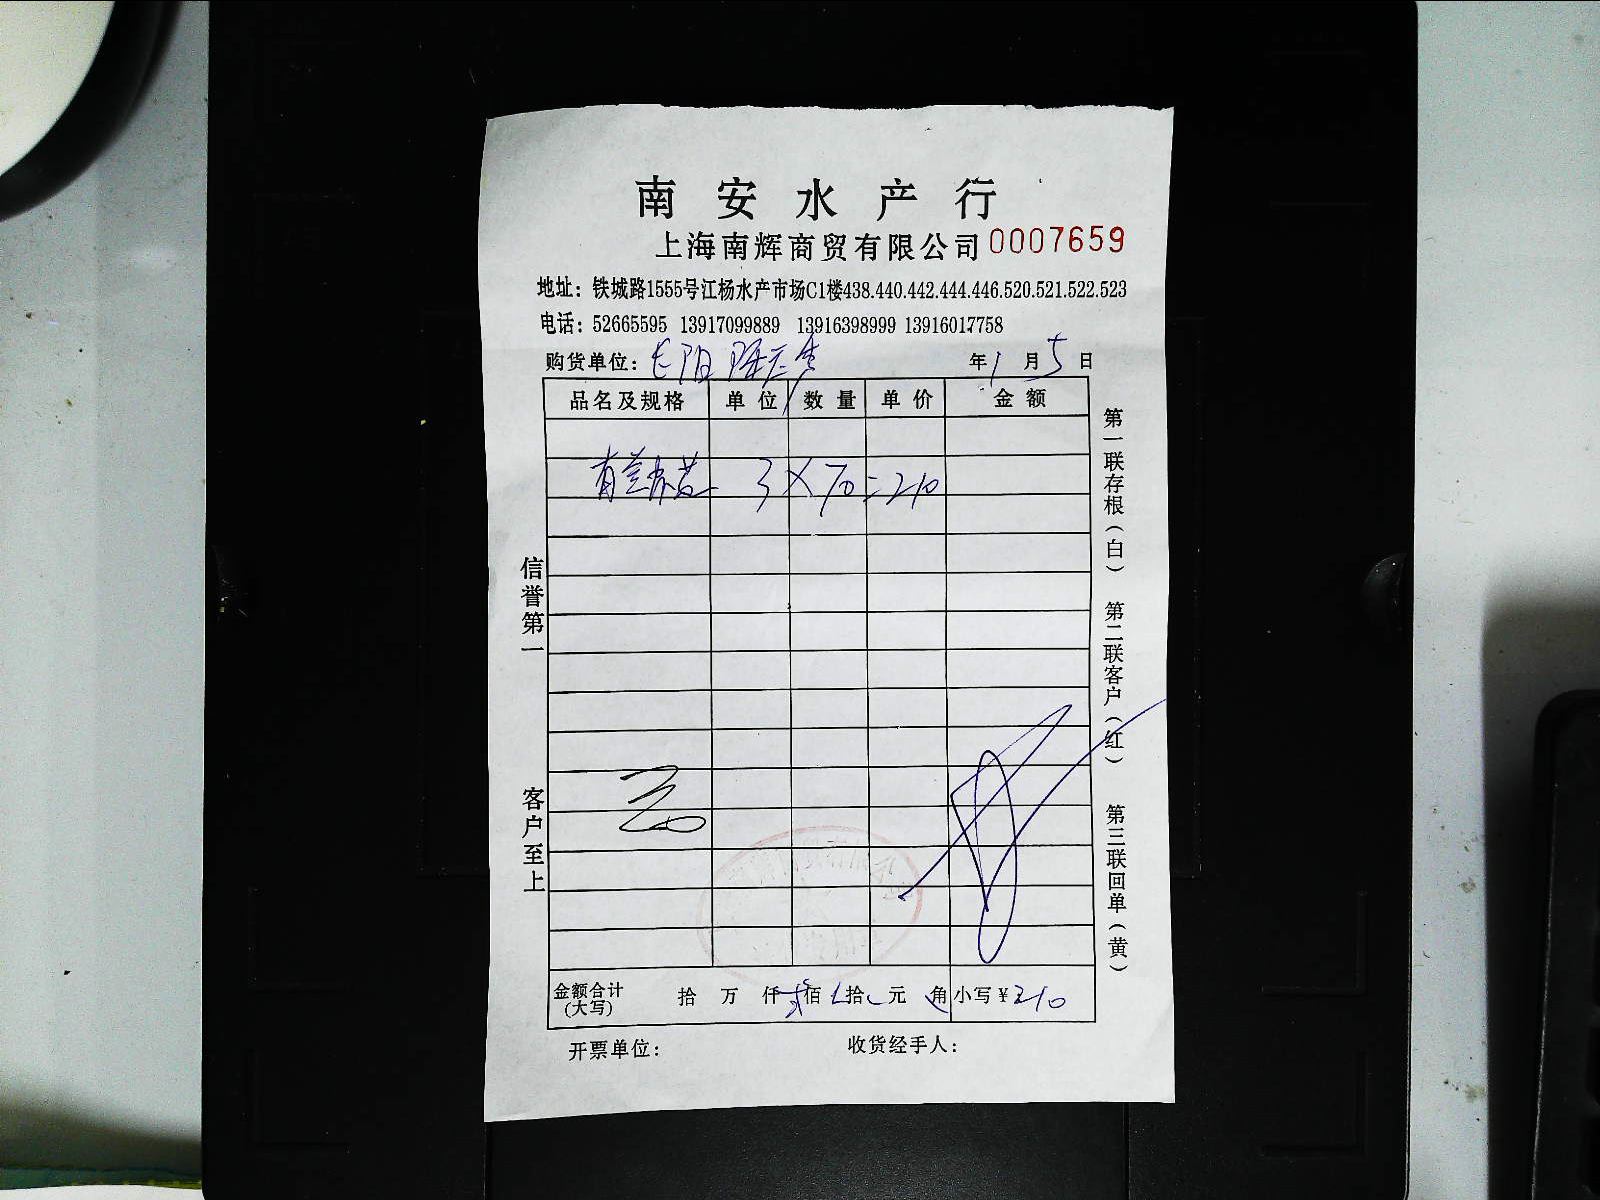 南安水产行
上海南辉商贸有限公司 0007659
地址：铁城路1555号江杨水产市场C1楼438.440.442.444.446.520.521.522.523
电话：52665595 13917099889 13916398999 13916017758
购货单位： 年 1 月 5 日
品名及规格 单位 数量 单价 金额
3 × 70 = 210
信誉第一
客户至上
第一联存根（白） 第二联客户（红） 第三联回单（黄）
金额合计（大写） 拾 万 仟 贰 佰 拾 元 角 小写￥210
开票单位： 收货经手人：